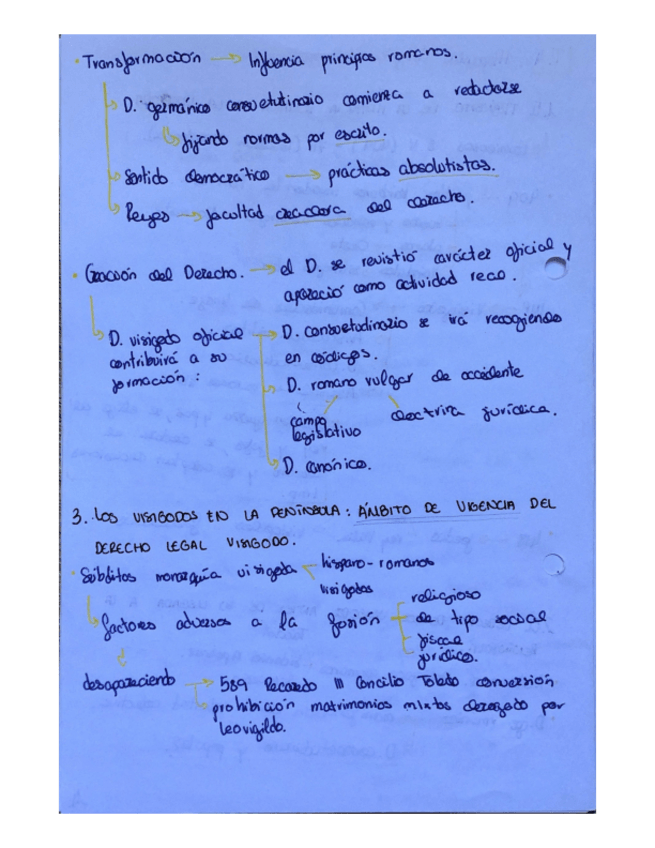 · Transformación → Influencia principios romanos.
D. germánico consuetudinario comienza a redactarse
fijando normas por escrito.
Sentido democrático → prácticas absolutistas.
Reyes → facultad creadora del derecho.
· Creación del Derecho. → el D. se revistió carácter oficial y
apareció como actividad real.
D. visigodo oficial → D. consuetudinario se irá recogiendo
contribuirá a su en códigos.
formación : D. romano vulgar de occidente
campo legislativo doctrina jurídica.
D. canónico.
3. LOS VISIGODOS EN LA PENÍNSULA: ÁMBITO DE VIGENCIA DEL
DERECHO LEGAL VISIGODO.
· Súbditos monarquía visigoda hispano-romanos
visigodos
factores adversos a la fusión religioso
de tipo social
fiscal
jurídico.
desapareciendo → 589 Recaredo III Concilio Toledo conversión
prohibición matrimonios mixtos derogado por
Leovigildo.